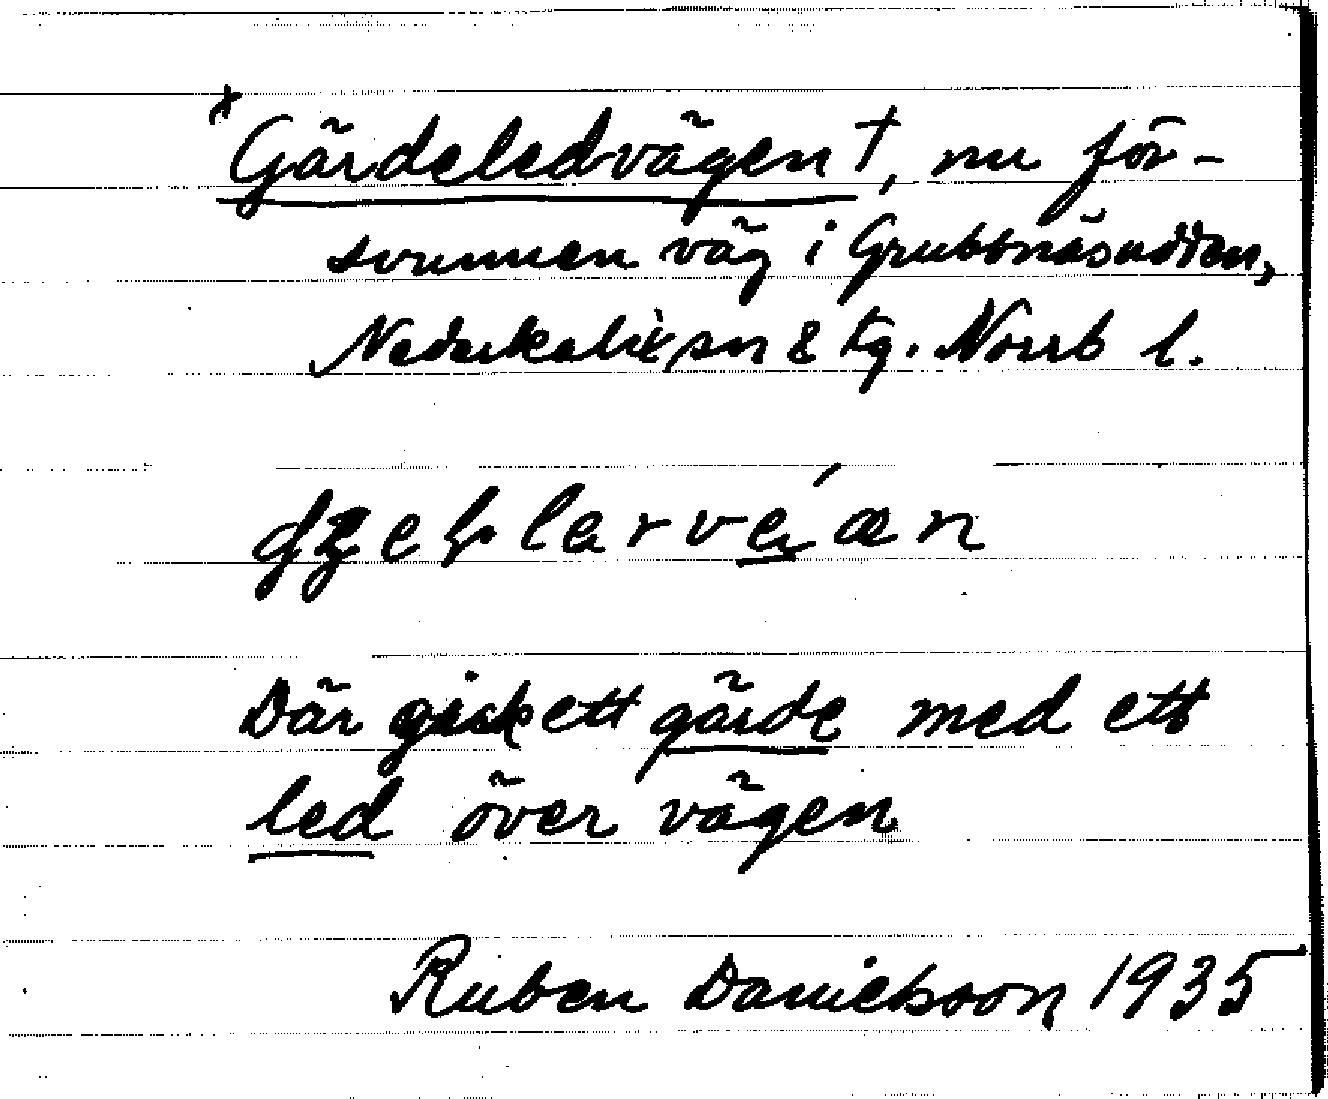 *Gärdeledvägen †, nu för-
svunnen väg i Grubbnäsudden,
Nederkalix sn & tg. Norrb l.
Där gick ett gärde med ett
led över vägen
Ruben Danielsson 1935